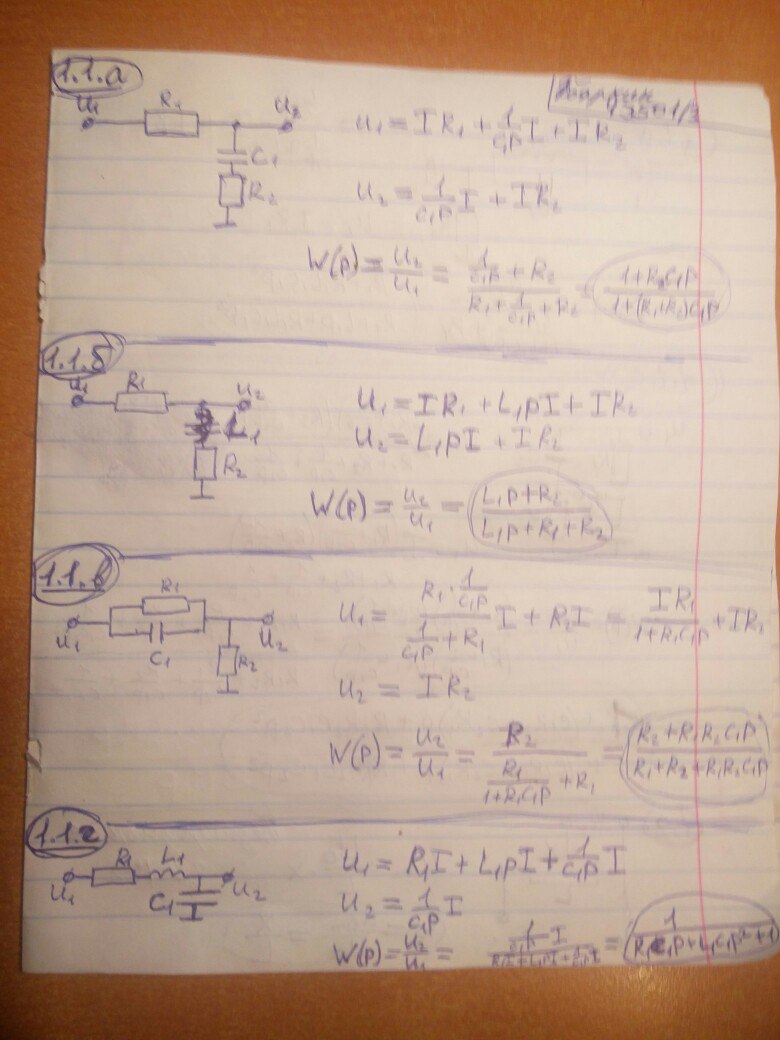 1.1.а
U₁ R₁ U₂
C₁
R₂
U₁ = IR₁ + 1/(C₁p) I + IR₂
U₂ = 1/(C₁p) I + IR₂
W(p) = U₂/U₁ = (1/(C₁p) + R₂)/(R₁ + 1/(C₁p) + R₂) = (1+R₂C₁p)/(1+(R₁+R₂)C₁p)
1.1.б
U₁ R₁ U₂
L₁
R₂
U₁ = IR₁ + L₁pI + IR₂
U₂ = L₁pI + IR₂
W(p) = U₂/U₁ = (L₁p+R₂)/(L₁p+R₁+R₂)
1.1.в
R₁
U₁ C₁ U₂
R₂
U₁ = (R₁·1/(C₁p))/(1/(C₁p) + R₁) I + R₂I = IR₁/(1+R₁C₁p) + IR₂
U₂ = IR₂
W(p) = U₂/U₁ = R₂/(R₁/(1+R₁C₁p) + R₁) = (R₂+R₁R₂C₁p)/(R₁+R₂+R₁R₂C₁p)
1.1.г
U₁ R₁ L₁ U₂
C₁
U₁ = R₁I + L₁pI + 1/(C₁p) I
U₂ = 1/(C₁p) I
W(p) = U₂/U₁ = (1/(C₁p) I)/(R₁I + L₁pI + 1/(C₁p) I) = 1/(R₁C₁p+L₁C₁p²+1)